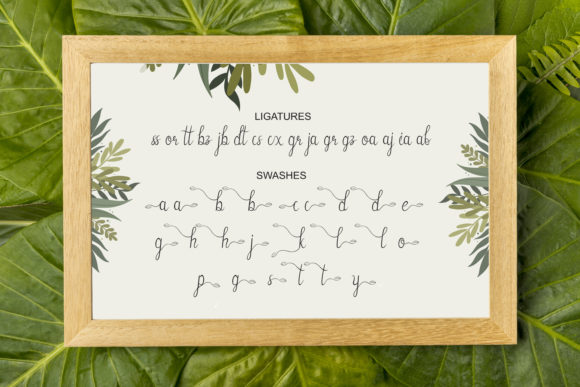 LIGATURES
ss or tt bz jb dt cs cx gr ja gr gz oa aj ia ab
SWASHES
a a b b c c d d e
g h h j k l l o
p g s t t y